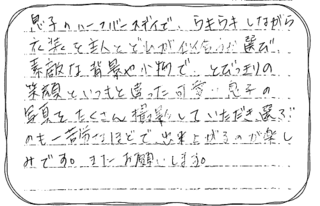 息子のハーフバースデイで、うきうきしながら
衣装を主人とどれが似合うか選び
素敵な背景や小物で、とびっきりの
笑顔といつもと違った可愛い息子の
写真をたくさん撮影していただき選ぶ
のも一苦労なほどで出来上がるのが楽し
みです。またお願いします。